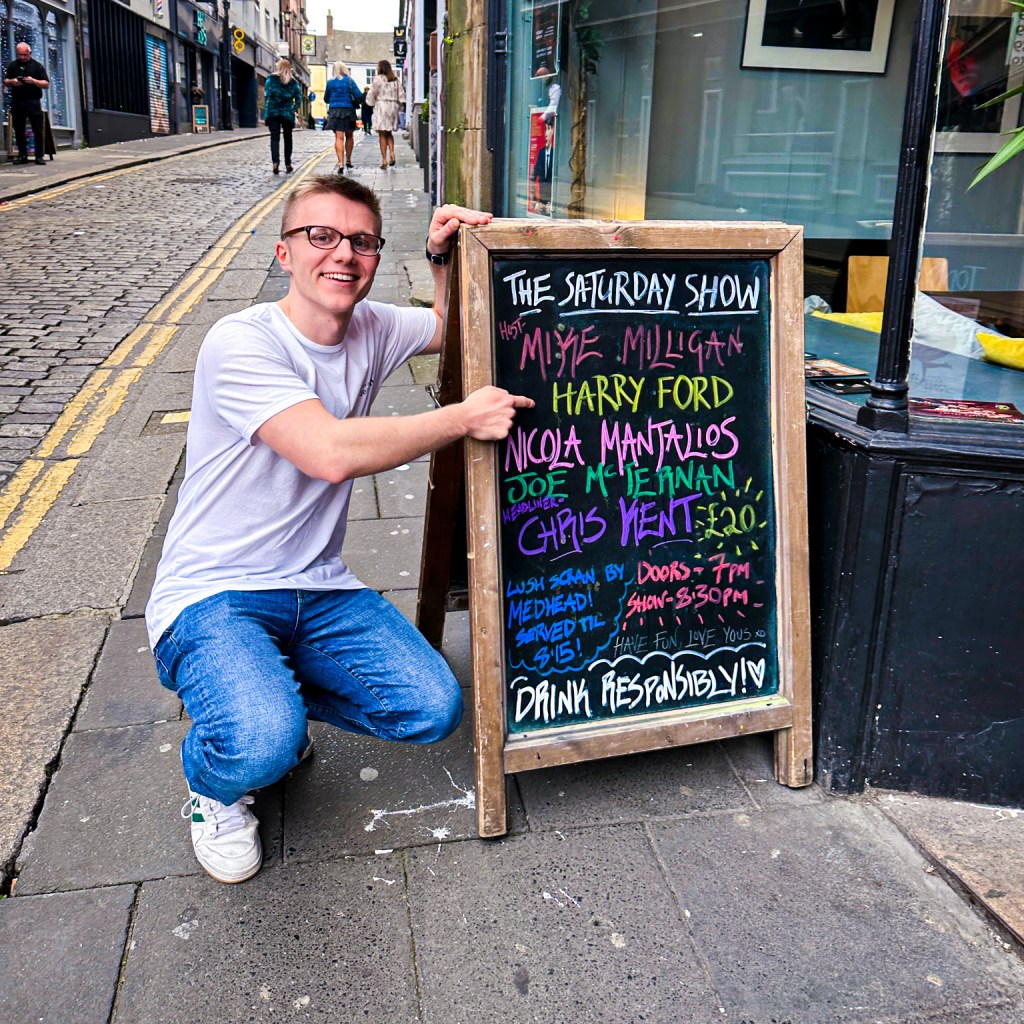 THE SATURDAY SHOW
HOST-
MIKE MILLIGAN
HARRY FORD
NICOLA MANTALIOS
JOE McTERNAN
HEADLINER-
CHRIS KENT
£20
LUSH SCRAN BY
MEDHEAD!
SERVED TIL
8:15!
DOORS - 7PM
SHOW - 8:30PM
HAVE FUN, LOVE YOUS xo
DRINK RESPONSIBLY!